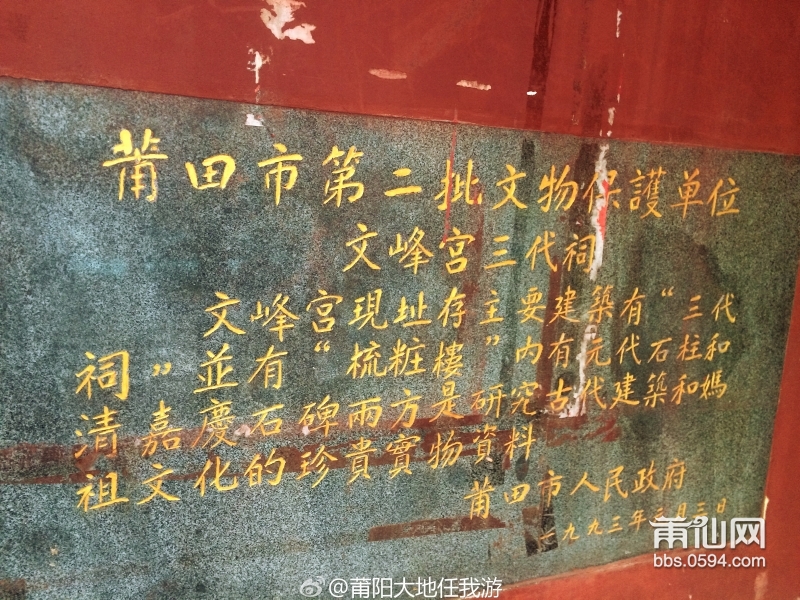 莆田市第二批文物保護单位
文峰宮三代祠
文峰宮現址存主要建築有“三代
祠”並有“梳粧樓”内有元代石柱和
清嘉慶石碑兩方是研究古代建築和媽
祖文化的珍貴實物資料
莆田市人民政府
一九九三年三月三日
莆仙网
bbs.0594.com
@莆阳大地任我游